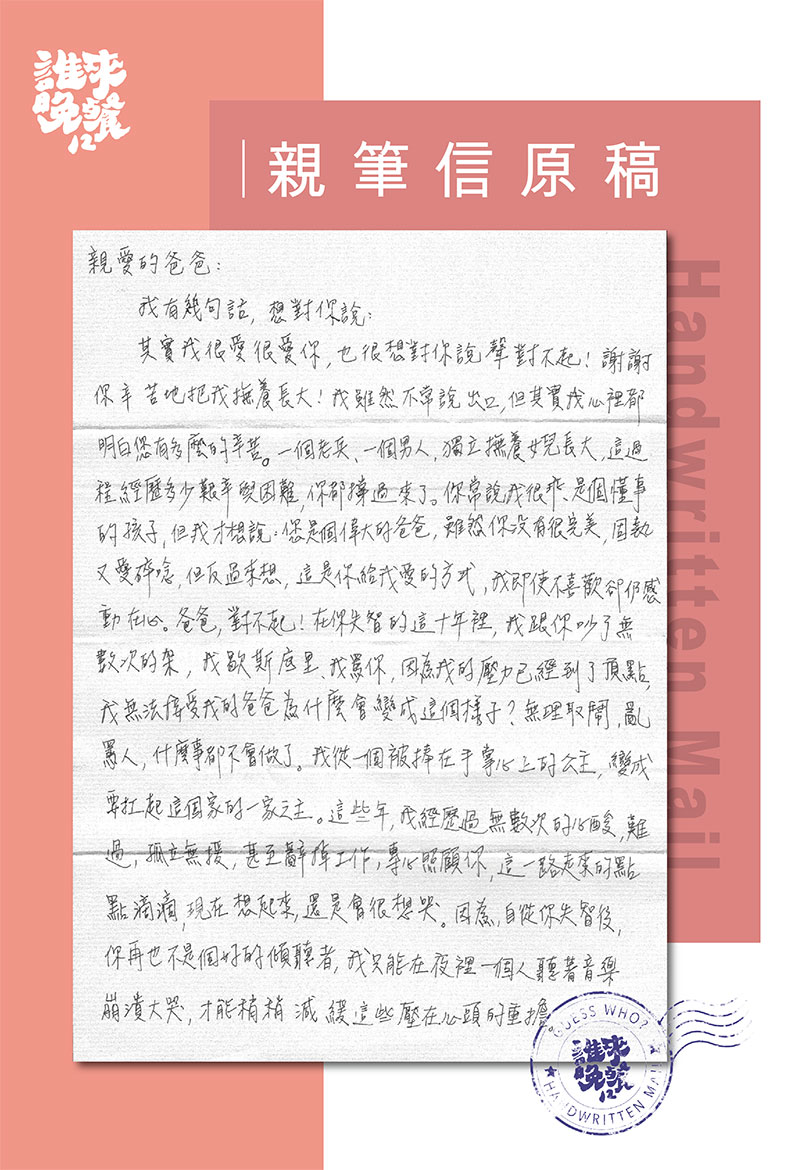 誰來
晚餐
12
親筆信原稿
Handwritten Mail
親愛的爸爸：
我有幾句話，想對你說：
其實我很愛很愛你，也很想對你說聲對不起！謝謝
你辛苦地把我撫養長大！我雖然不常說出口，但其實我心裡都
明白您有多麼的辛苦。一個老兵、一個男人，獨立撫養女兒長大，這過
程經歷多少艱辛與困難，你都撐過來了。你常說我很乖、是個懂事
的孩子，但我才想說：您是個偉大的爸爸，雖然你沒有很完美，固執
又愛碎唸，但反過來想，這是你給我愛的方式，我即使不喜歡卻仍感
動在心。爸爸，對不起！在你失智的這十年裡，我跟你吵了無
數次的架，我歇斯底里、我罵你，因為我的壓力已經到了頂點，
我無法接受我的爸爸為什麼會變成這個樣子？無理取鬧，亂
罵人，什麼事都不會做了。我從一個被捧在手掌心上的公主，變成
要扛起這個家的一家之主。這些年，我經歷過無數次的心酸，難
過，孤立無援，甚至辭掉工作，專心照顧你，這一路走來的點
點滴滴，現在想起來，還是會很想哭。因為，自從你失智後，
你再也不是個好的傾聽者，我只能在夜裡一個人聽著音樂
崩潰大哭，才能稍稍減緩這些壓在心頭的重擔
GUESS WHO?
誰來
晚餐
12
HANDWRITTEN MAIL